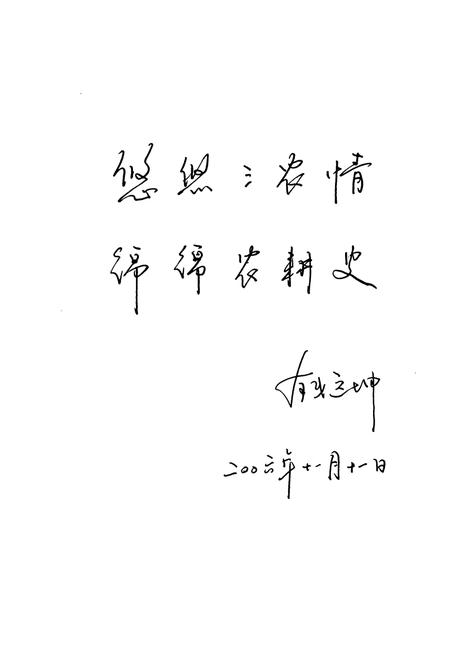 悠悠三农情
绵绵农耕史
二〇〇六年十一月十一日